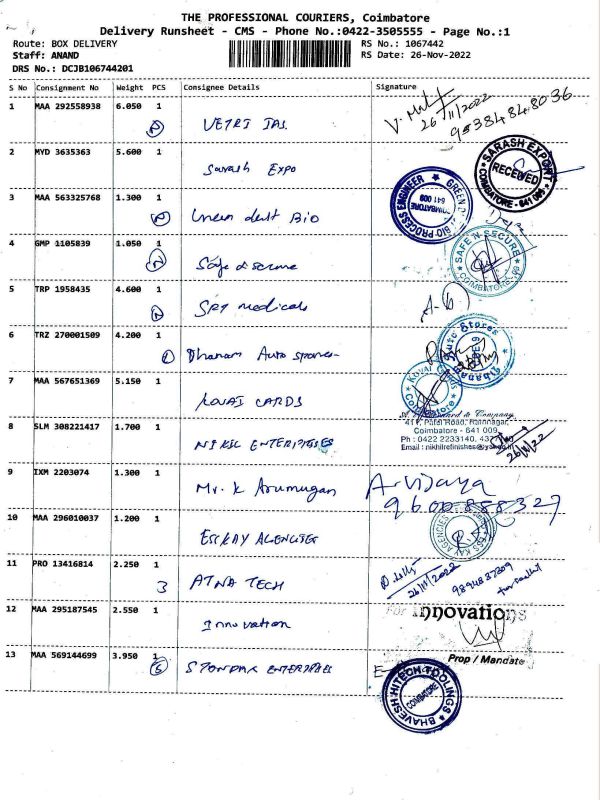 THE PROFESSIONAL COURIERS, Coimbatore
Delivery Runsheet - CMS - Phone No.:0422-3505555 - Page No.:1
Route: BOX DELIVERY RS No.: 1067442
Staff: ANAND RS Date: 26-Nov-2022
DRS No.: DCJB106744201
S No Consignment No Weight PCS Consignee Details Signature
1 MAA 292558938 6.050 1 VETRI IAS
26/11/2022
9538484 8036
2 MYD 3635363 5.600 1 Sarash Expo
SARASH EXPORT
RECEIVED
COIMBATORE - 641 009
3 MAA 563325768 1.300 1 Bio
BIO PROCESS ENGINEER
COIMBATORE
641 009
4 GMP 1105839 1.050 1
SAFE N SECURE
COIMBATORE
5 TRP 1958435 4.600 1 SRI medicals
6 TRZ 270001509 4.200 1 Dhanam Auto spares
Auto Stores
7 MAA 567651369 5.150 1 KOVAI CARDS
Kovai Cards
Coimbatore
8 SLM 308221417 1.700 1 ENTERPRISES
& Company
Patel Road, Ramnagar,
Coimbatore - 641 009
Ph : 0422 2233140,
26/11/22
9 IXM 2203074 1.300 1 Mr. K Arumugan
A. Vijaya
9600888327
10 MAA 296010037 1.200 1 ESSKAY AGENCIES
KAY AGENCIES
11 PRO 13416814 2.250 1 ATNA TECH
3
26/11/2022
9894837809
12 MAA 295187545 2.550 1 Innovation
For Innovations
Prop / Mandate
13 MAA 569144699 3.950 1 ENTERPRISES
BHAVESH HITECH TOOLINGS
COIMBATORE